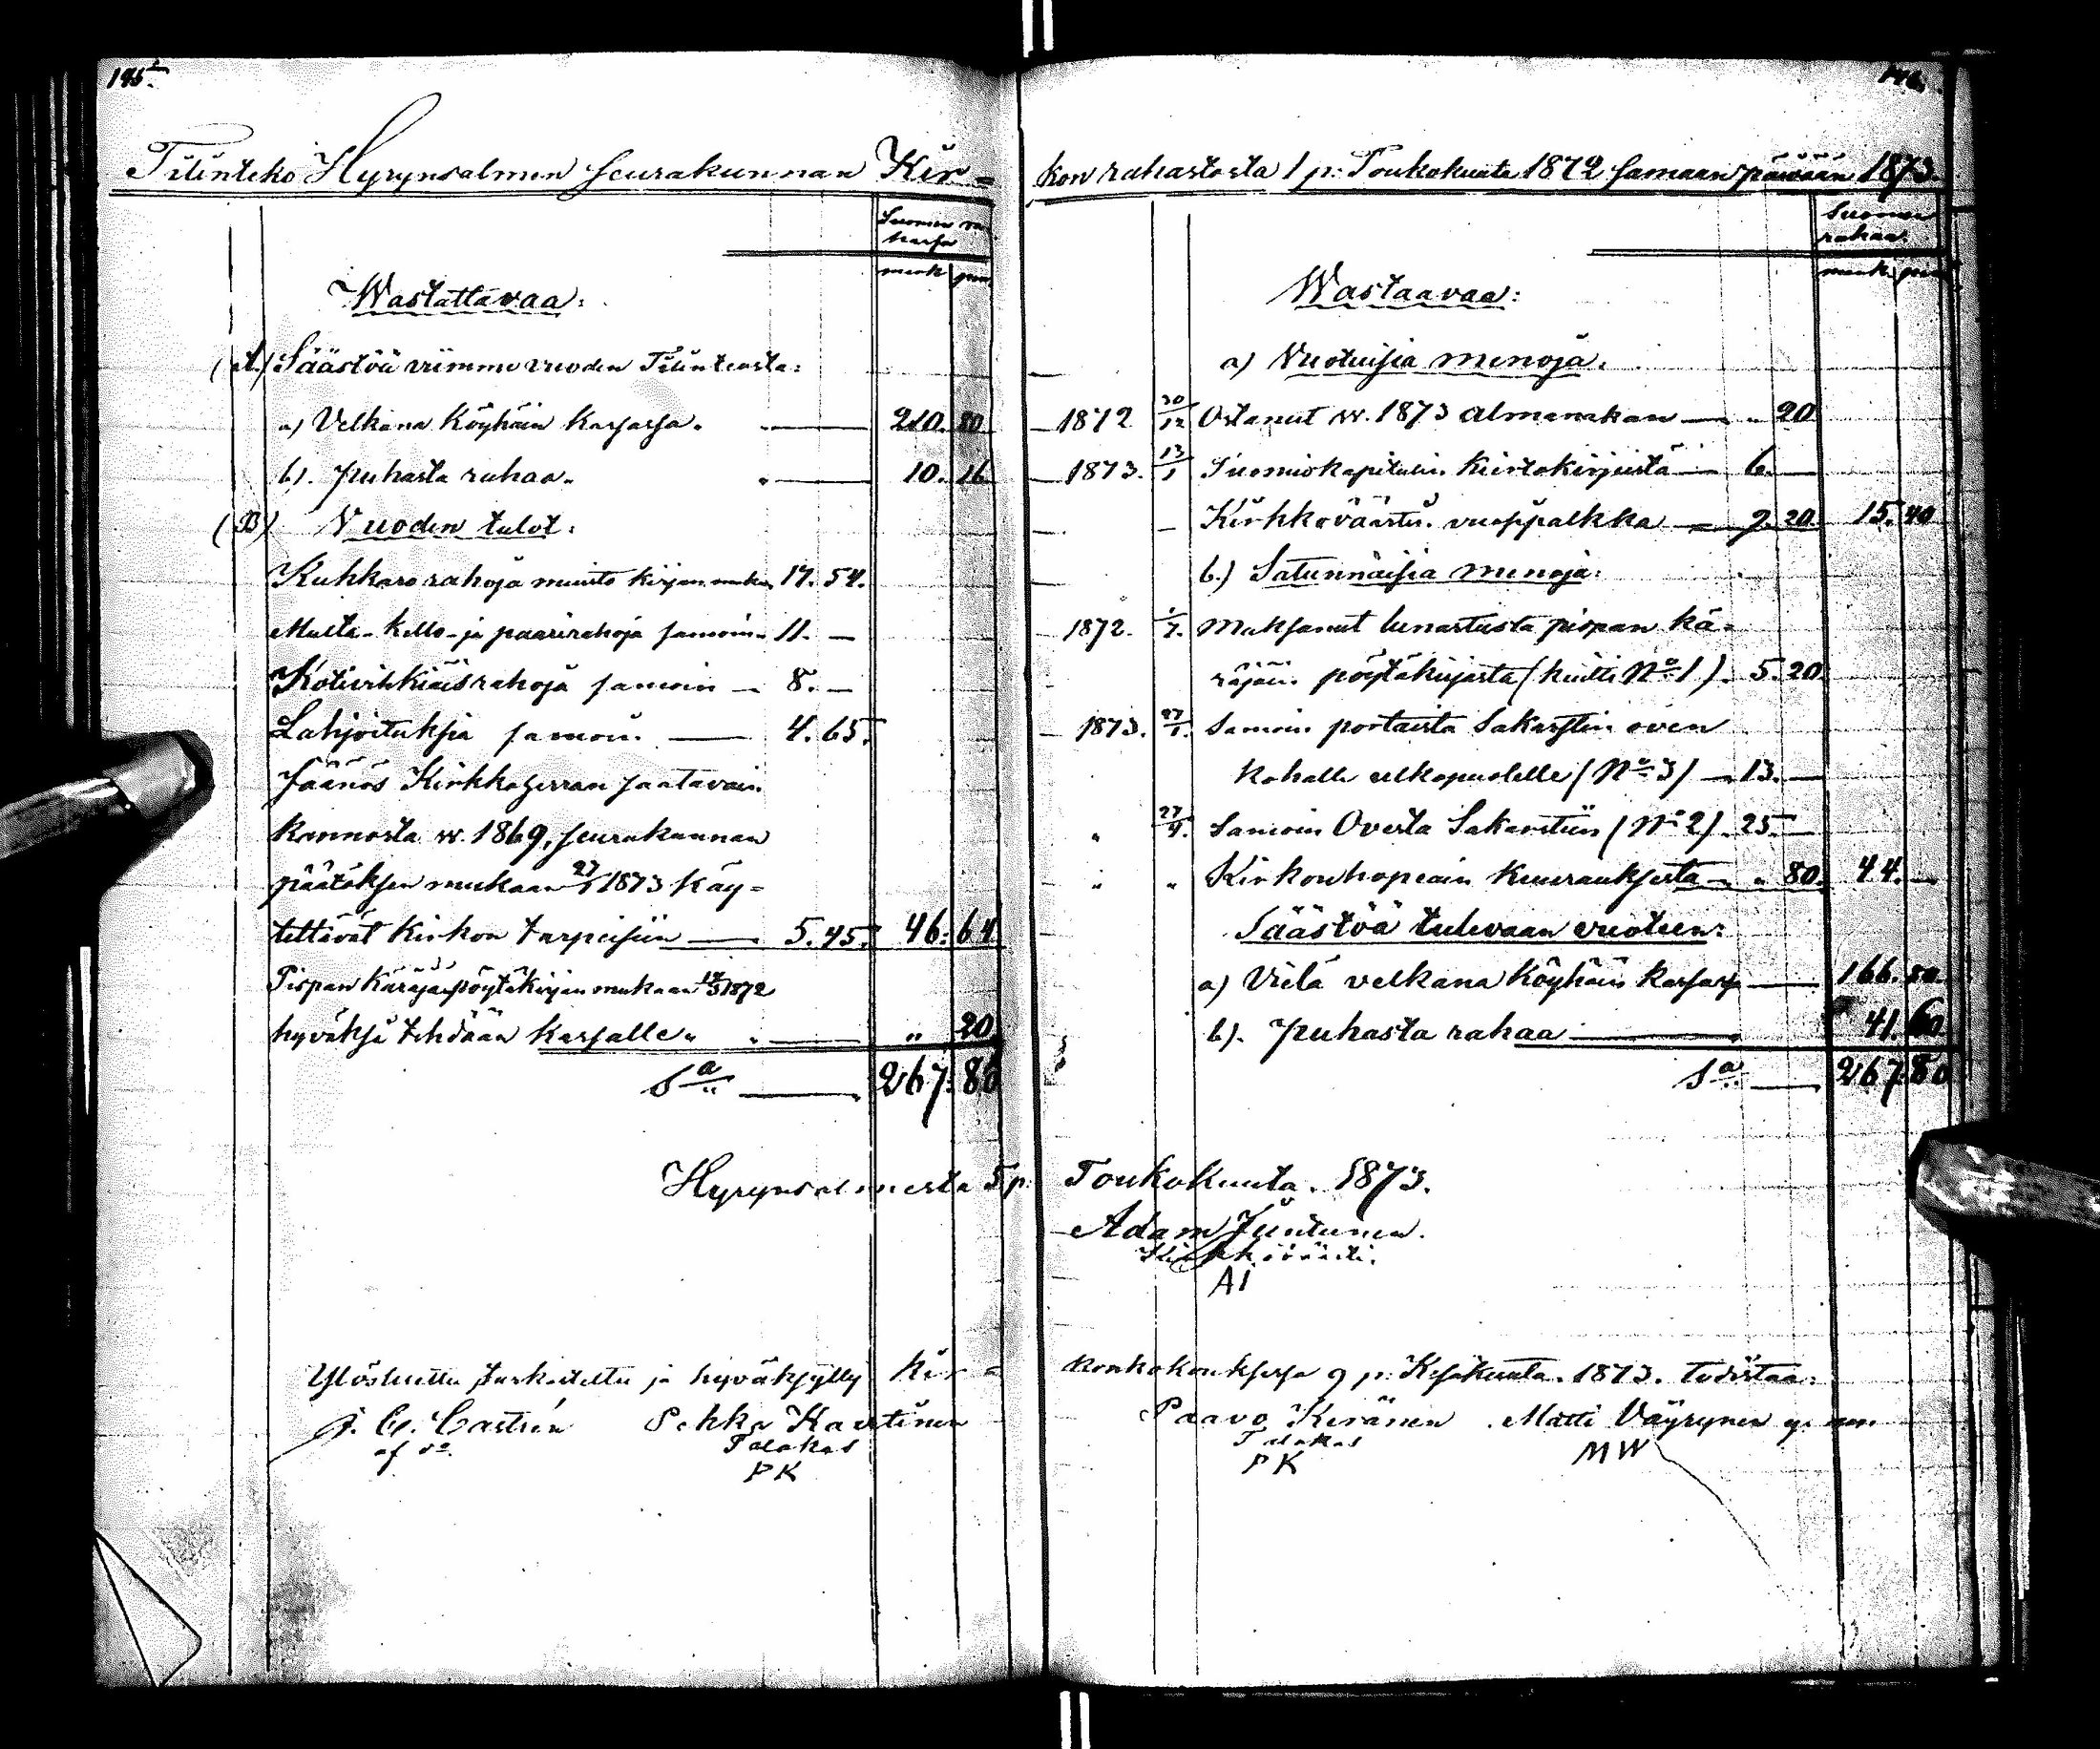 195.
Tilinteko Hyrynsalmen seurakunnan Kir=
Suomen ra-
hassa
mark pen
Wastattavaa:
(A.) Säästöä viimme vuoden Tilinteosta:
a) Velkana Köyhäin kassassa. — 210. 80
b). Puhasta rahaa. " — 10. 16
(B) Vuoden tulot:
Kuhkaro rahoja muisto kirjan muka. 17. 54.
Multa- kello- ja paarirahoja samoin 11. —
Kotivihkiäisrahoja samoin — 8. —
Lahjoituksia samoin — 4. 65.
Jäänös Kirkkoherran saatavain
kannosta w. 1869, seurakunnan
päätöksen mukaan 27/4 1873 käy=
tettävät kirkon tarpeisiin — 5. 45. 46. 64
Pispan Käräjäpöytäkirjan mukaan 1872
hyväksi tehdään kassalle " — " 20
Sa — 267. 80
Hyrynsalmesta 5 p:
Ylösluettu tarkastettu ja hyväksytty kir=
J. G. Castrén Pekka Karttinen
Talokas
PK
kon rahastosta 1 p: Toukokuuta 1872 samaan päivään 1873.
Suomen
rahaa.
mark pen
Wastaavaa:
a) Vuotuisia menoja.
1872 30/12 Ostanut w. 1873 almanakan — " 20
1873. 13/1 Tuomiokapitulin kiertokirjeistä — 6. —
— Kirkkoväärtin vuosipalkka — 9. 20. 15. 40
b.) Satunnaisia menoja:
1872. 1/7. Maksanut lunastusta pispan kä=
räjäin pöytäkirjasta (kuitti No 1). 5. 20.
1873. 27/1. Samoin portaista Sakastin oven
kohalle ulkopuolelle (No 3) — 13. —
" 27/4. Samoin Ovesta Sakastiin (No 2). 25. —
" " Kirkonhopeain kuurauksesta — " 80. 44. —
Säästöä tulevaan vuoteen:
a) Vielä velkana Köyhäin kassassa — 166. 80.
b). Puhasta rahaa — 41. 60
Sa — 267 80
Toukokuuta. 1873.
Adam Juntunen.
Kirkkoväärti.
AI
konkokouksessa 9 p: Kesäkuuta. 1873. todistaa:
Paavo Keränen. Matti Väyrynen
Talokas
PK MW